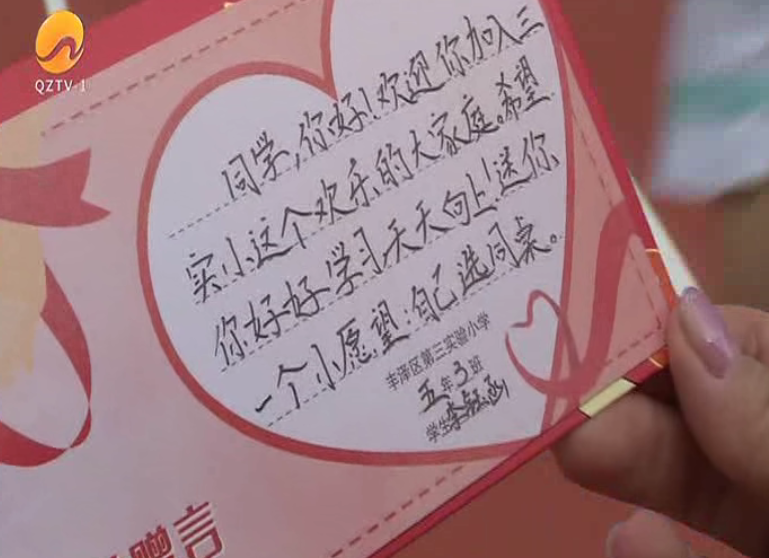 QZTV-1
同学,你好!欢迎你加入三
实小这个欢乐的大家庭。希望
你好好学习天天向上!送你
一个小愿望:自己选同桌。
丰泽区第三实验小学
五年3班
学生李钰涵
赠言